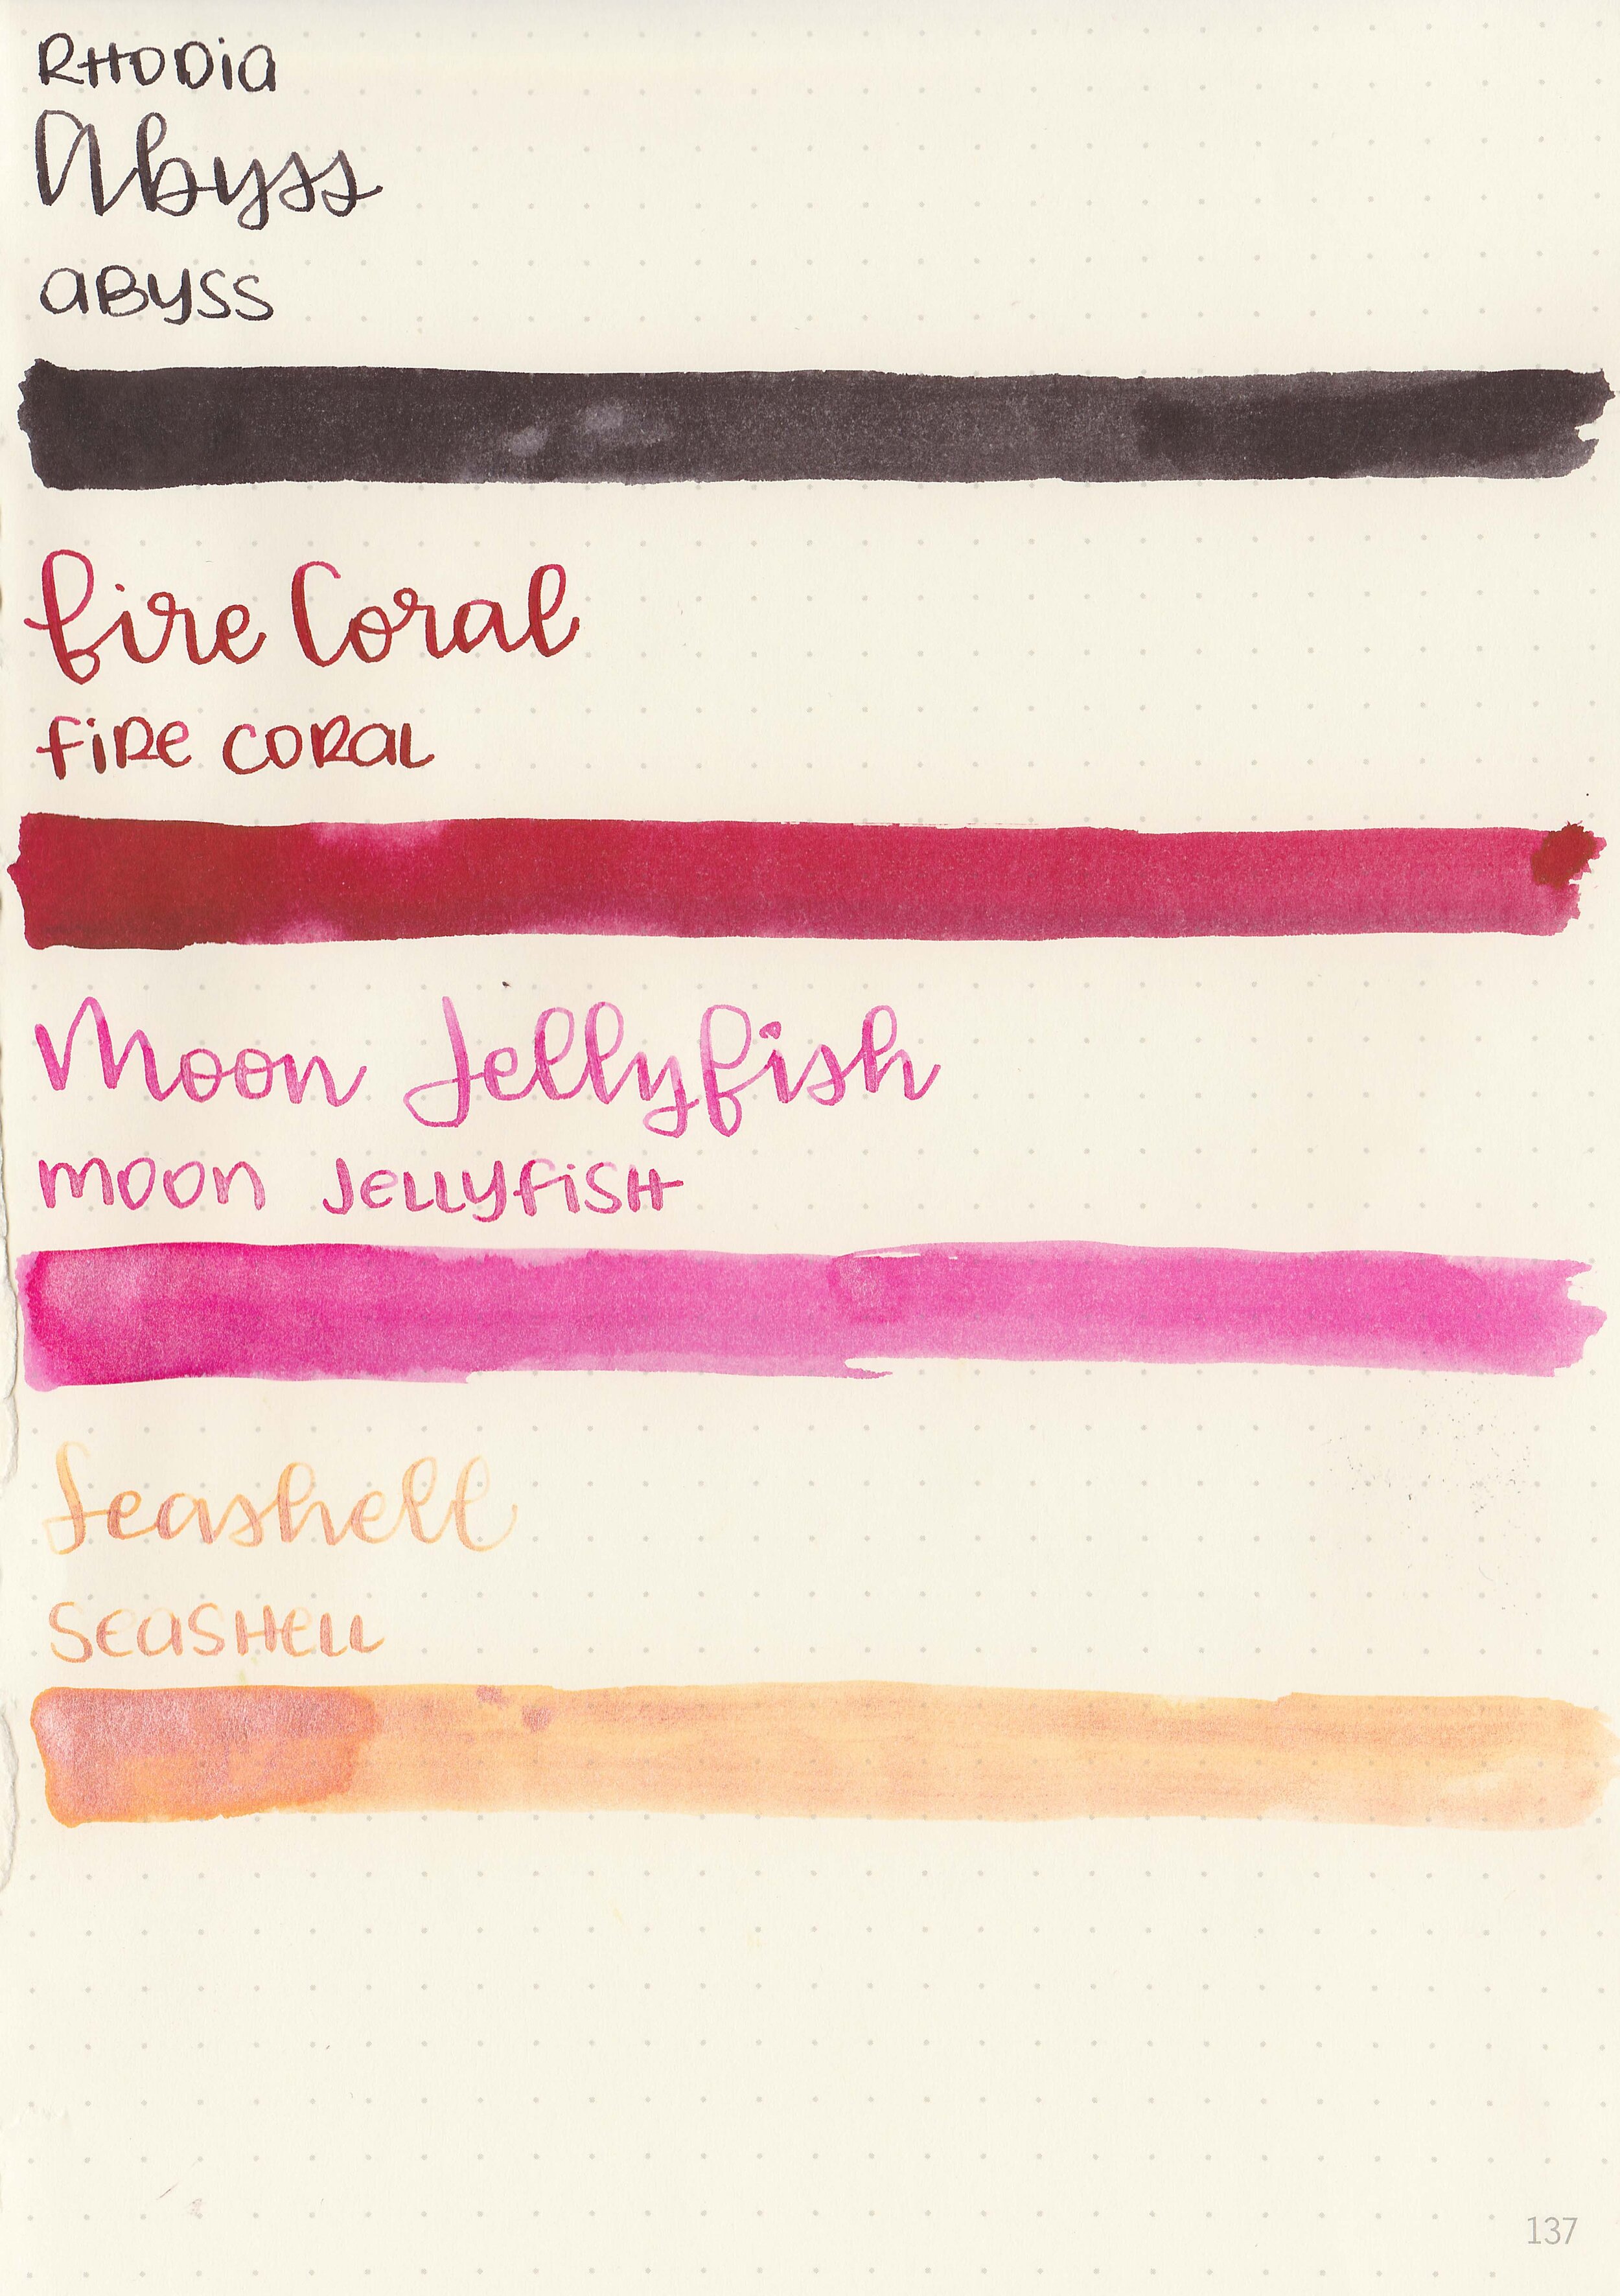 RHODia
Abyss
aByss
fire Coral
fiRe CORaL
Moon Jellyfish
mOOn JeLLyfiSH
Seashell
SeaSHeLL
137